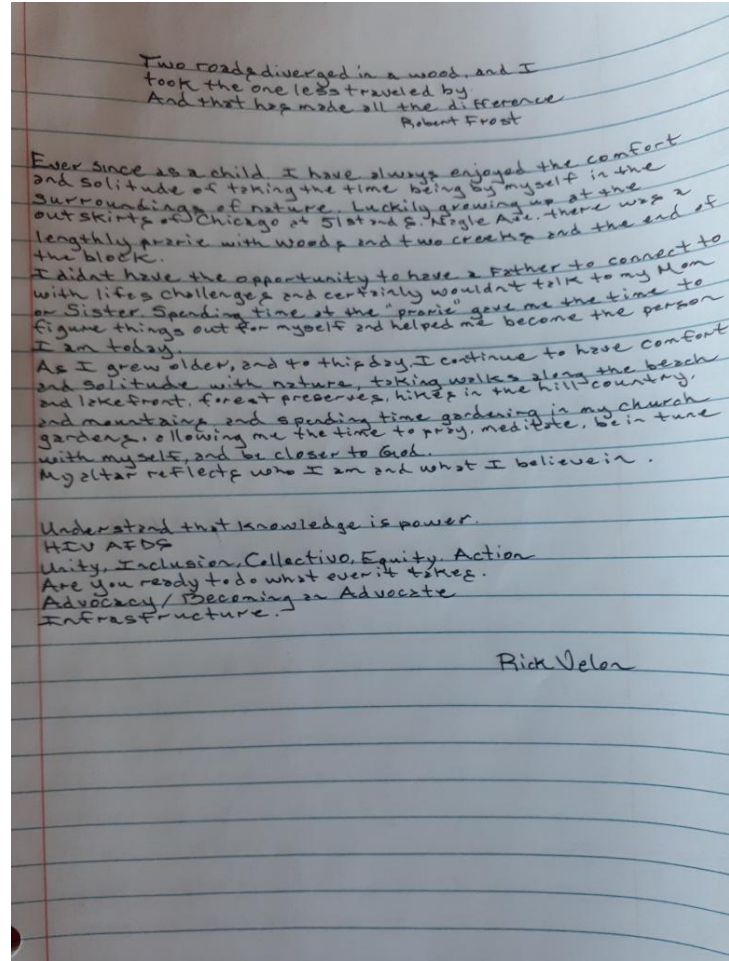 Two roads diverged in a wood, and I
took the one less traveled by.
And that has made all the difference
Robert Frost
Ever since as a child I have always enjoyed the comfort
and solitude of taking the time being by myself in the
surroundings of nature. Luckily growing up at the
outskirts of Chicago at 51st and S. Nagle Ave. there was a
lengthly prarie with woods and two creeks and the end of
the block.
I didnt have the opportunity to have a Father to connect to
with lifes challenges and certainly wouldnt talk to my Mom
or Sister. Spending time at the "prarie" gave me the time to
figure things out for myself and helped me become the person
I am today.
As I grew older, and to this day, I continue to have comfort
and solitude with nature, taking walks along the beach
and lakefront, forest preserves, hikes in the hill country,
and mountains, and spending time gardening in my church
gardens, allowing me the time to pray, meditate, be in tune
with myself, and be closer to God.
My altar reflects who I am and what I believe in.
Understand that knowledge is power.
HIV AIDS
Unity, Inclusion, Collectivo, Equity, Action
Are you ready to do what ever it takes.
Advocacy/Becoming an Advocate
Infrastructure.
Rick Velon